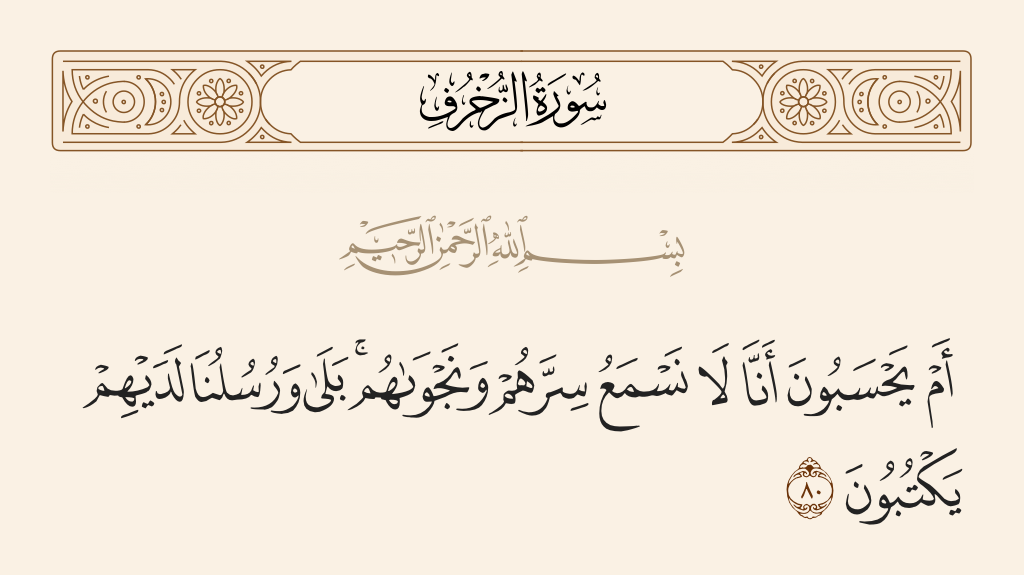 سُورَةُ الزُّخْرُفِ
بِسْمِ ٱللَّهِ ٱلرَّحْمَٰنِ ٱلرَّحِيمِ
أَمْ يَحْسَبُونَ أَنَّا لَا نَسْمَعُ سِرَّهُمْ وَنَجْوَىٰهُم ۚ بَلَىٰ وَرُسُلُنَا لَدَيْهِمْ
يَكْتُبُونَ ٨٠